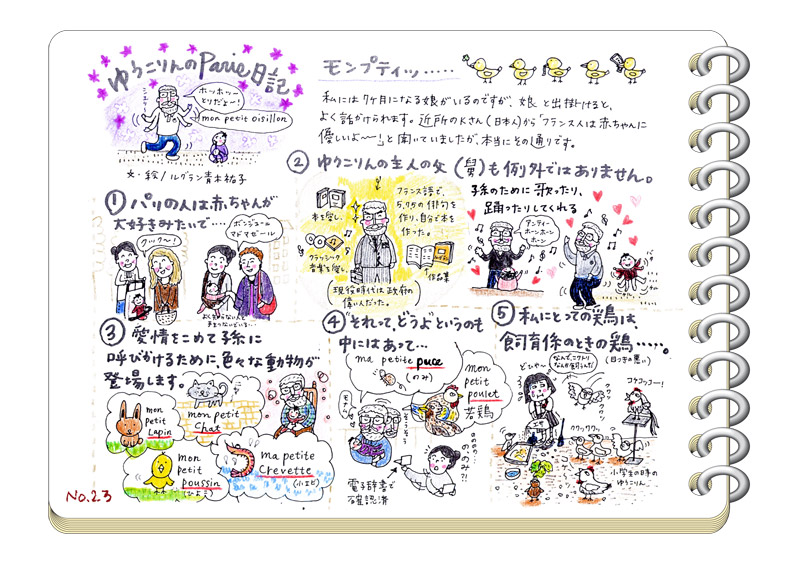 ゆうこりんのParie日記
ホッホッー
とりだよー!
mon petit oisillon
文・絵/ルグラン青木祐子
モンプティッ……
私には7ヶ月になる娘がいるのですが、娘と出掛けると、
よく話かけられます。近所のKさん(日本人)から「フランス人は赤ちゃんに
優しいよ〜!」と聞いていましたが、本当にその通りです。
① パリの人は赤ちゃんが
大好きみたいで…
クック〜!
ボンジュール
マドマゼール
② ゆうこりんの主人の父(舅)も例外ではありません。
本を愛し、
クラシック
音楽を愛し、
フランス語で、
5,7,5の俳句を
作り、自分で本を
作った。
作品集
現役時代は政府の
偉い人だった。
孫のために歌ったり、
踊ったりしてくれる
③ 愛情をこめて孫に
呼びかけるために、色々な動物が
登場します。
mon
petit
Lapin
mon petit
Chat
mon
petit
poussin
(ひよこ)
ma petite
Crevette
(小エビ)
④ "それって、どうよ"というのも
中にはあって…
ma petite puce
(のみ)
mon
petit
poulet
若鶏
ののの のみ?!
電子辞書で
確認済
⑤ 私にとっての鶏は、
飼育係のときの鶏……。
どひゃ〜
(目つきの悪い)
コケコッコー!
クワックワッ
小学生の日本の
ゆうこりん
No.23